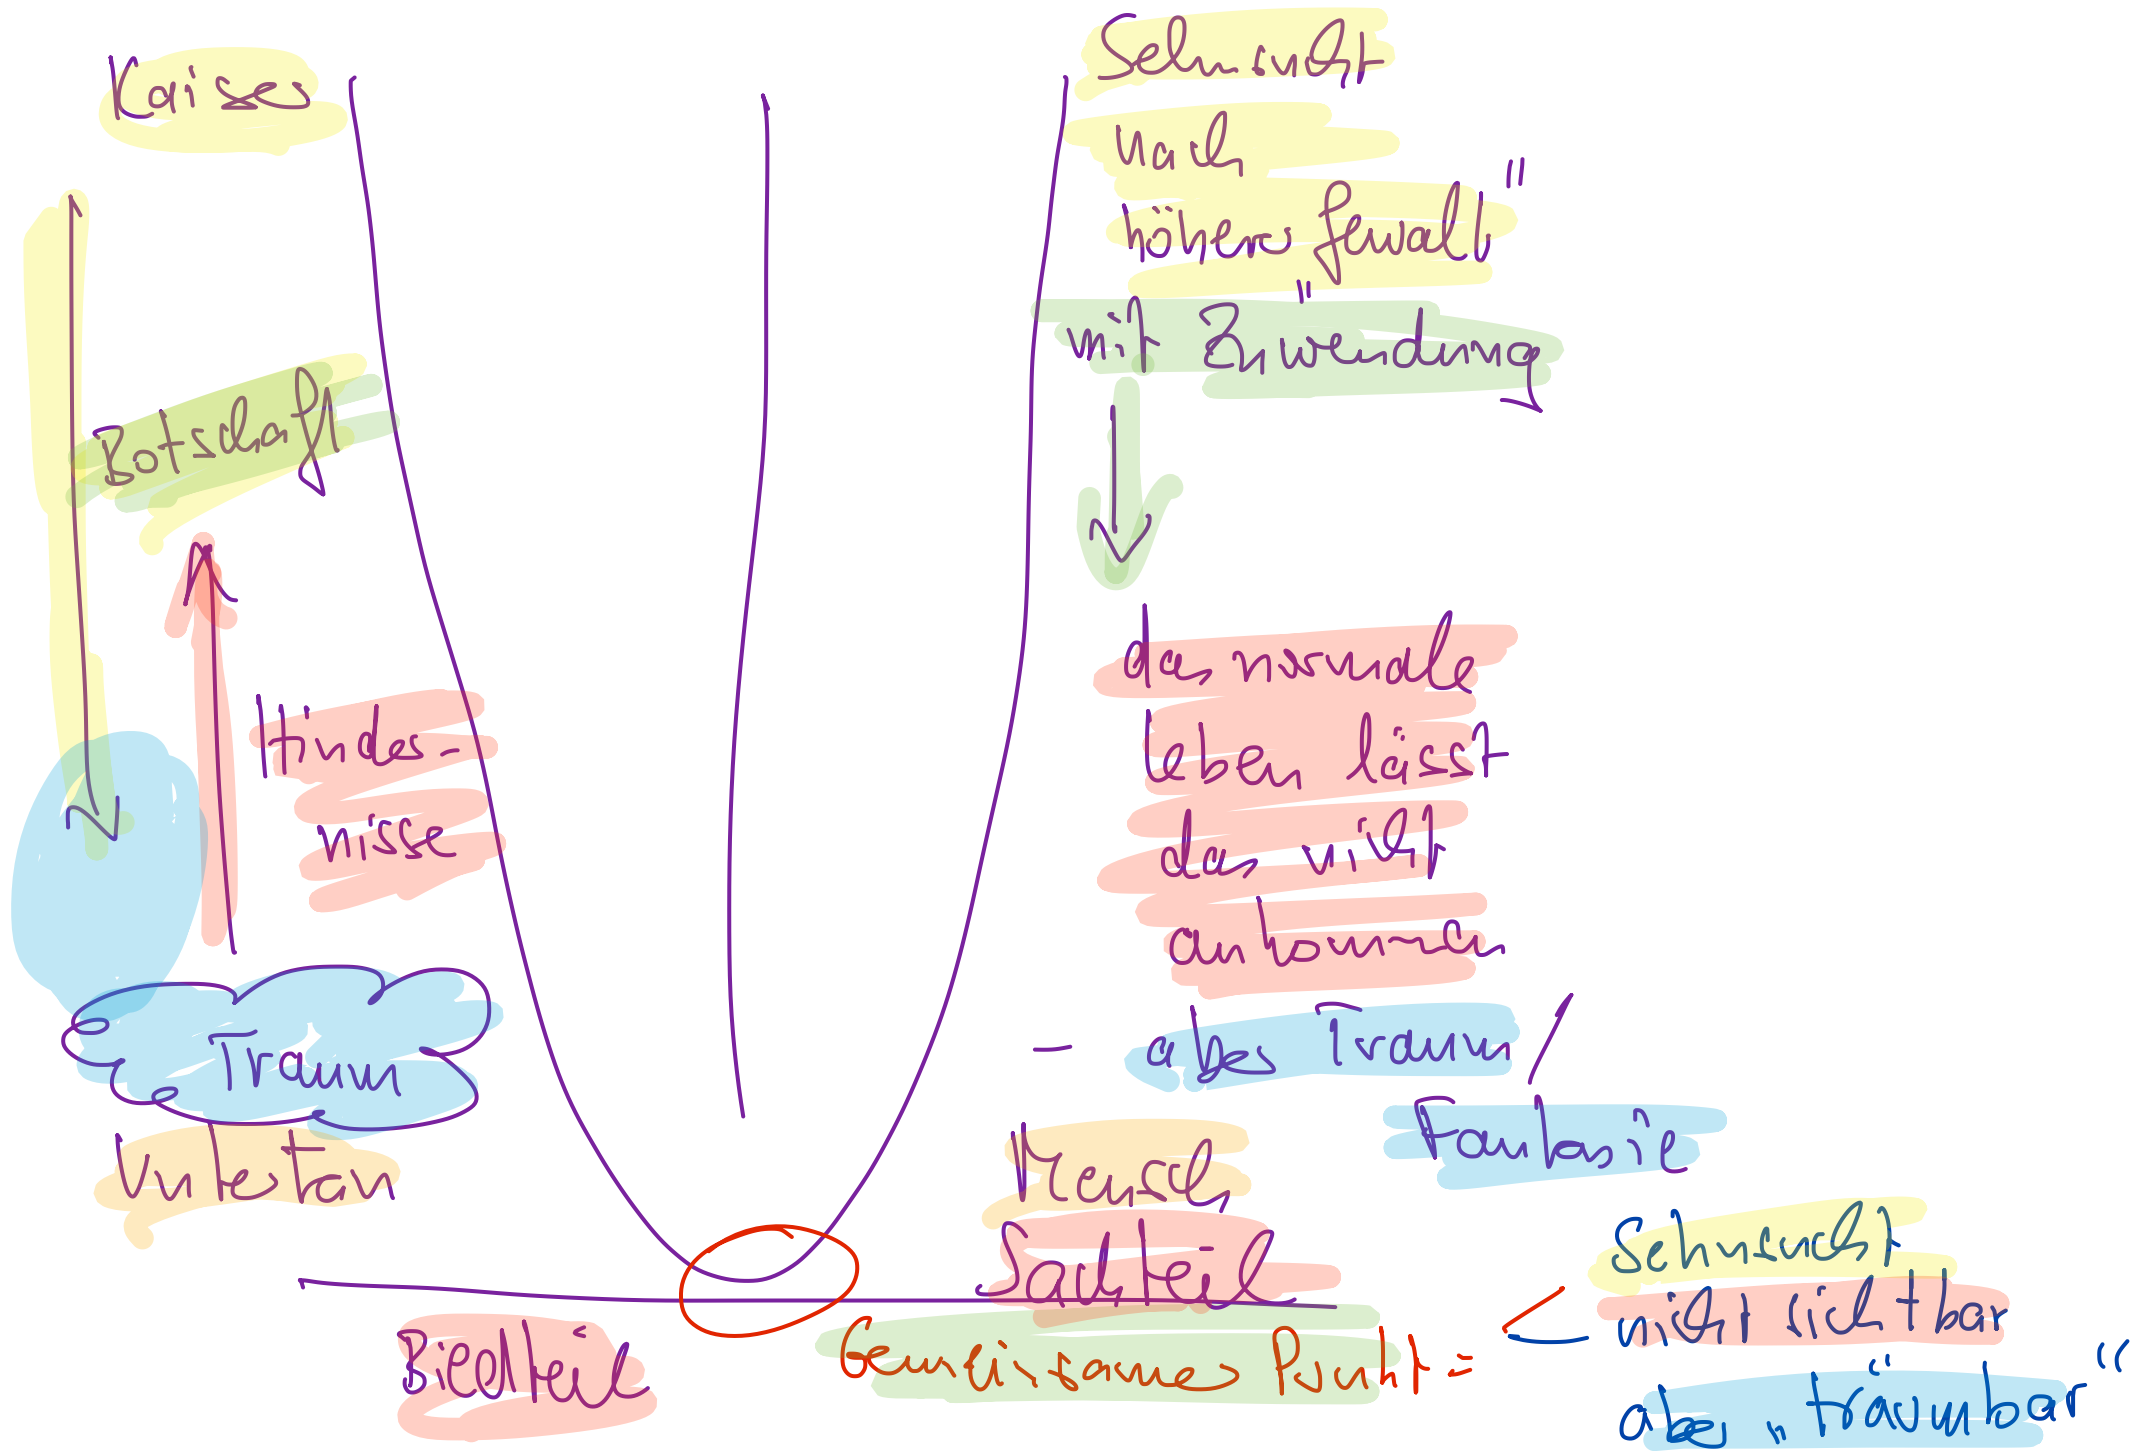 Kaiser
Botschaft
Hinder-
nisse
Traum
Untertan
Bildteil
Sehnsucht
nach
höherer Gewalt"
mit "Zuwendung
das normale
Leben lässt
das nicht
ankommen
- aber Traum /
Fantasie
Mensch
Sachteil
Gemeinsamer Punkt =
< Sehnsucht
nicht sichtbar
aber „träumbar“